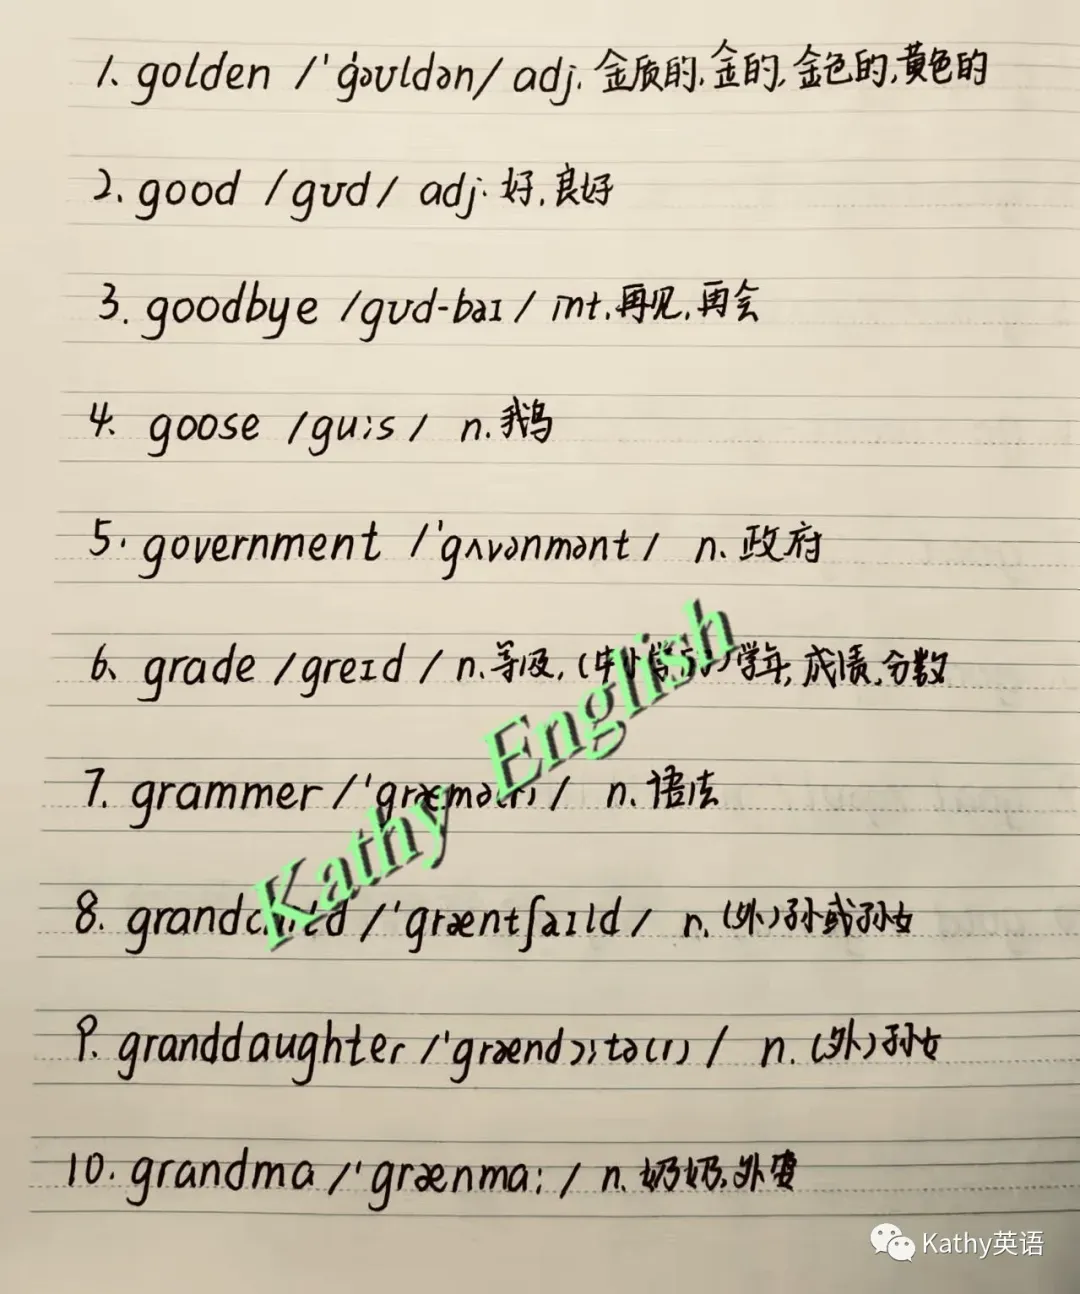 1. golden /ˈgəʊldən/ adj. 金质的, 金的, 金色的, 黄色的
2. good /gʊd/ adj. 好, 良好
3. goodbye /gʊd-baɪ/ int. 再见, 再会
4. goose /guːs/ n. 鹅
5. government /ˈgʌvənmənt/ n. 政府
6. grade /greɪd/ n. 等级, (中小学的) 学年, 成绩, 分数
7. grammer /ˈgræmə(r)/ n. 语法
8. grandchild /ˈgræntʃaɪld/ n. (外)孙或孙女
9. granddaughter /ˈgrændɔːtə(r)/ n. (外)孙女
10. grandma /ˈgrænmaː/ n. 奶奶, 外婆
Kathy English
Kathy英语